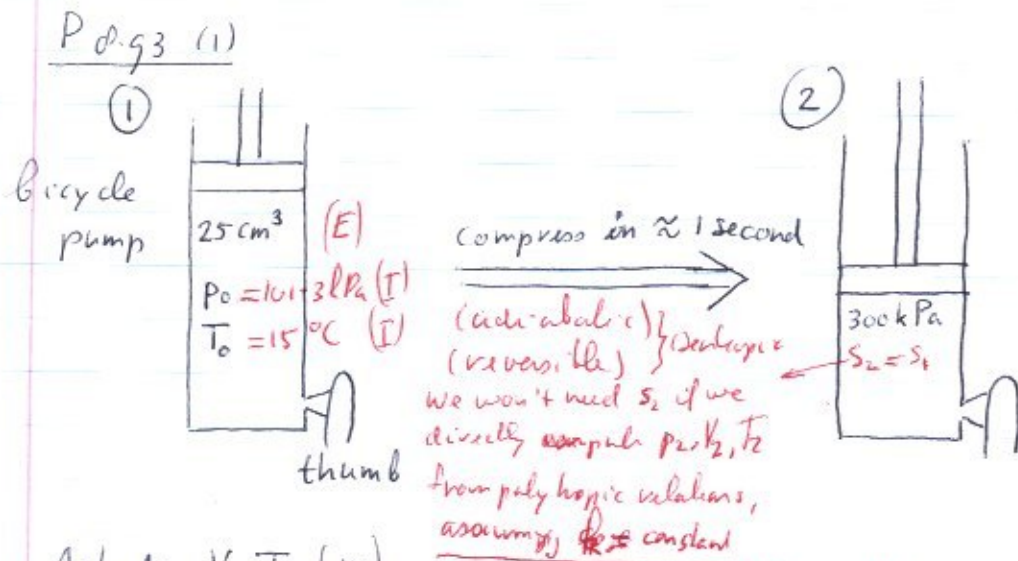 P 8.93 (1)
①
②
bicycle
pump
25 cm³ (E)
P₀ = 101.3 kPa (I)
T₀ = 15 °C (I)
compress in ≈ 1 second
(adiabatic)
(reversible) } isentropic
we won't need s₂ if we
directly compute p₂, V₂, T₂
from polytropic relations,
assuming constant
300 kPa
S₂ = S₁
thumb